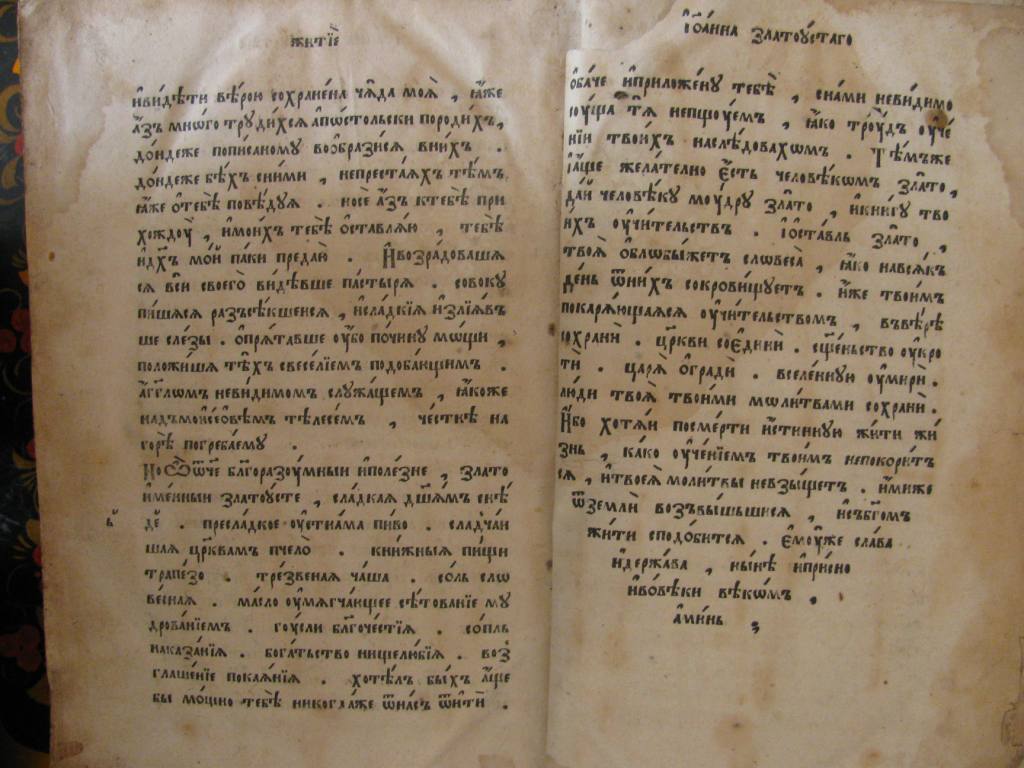 житїѐ
и҆ви́дѣти вѣ́рою сохране́на чѧ̑да моѧ̀ , ꙗ҆́же
а҆́зъ мно́го трꙋди́хсѧ а҆пⷭ҇тольски породи́хъ ,
до́ндеже пописаномꙋ воѡбрази́сѧ вни́хъ .
до́ндеже бѣ́хъ сни́ми , непреста́ѧхъ тѣ́мъ
ꙗ҆́же ѿтебѐ повѣ́дꙋѧ . носѐ а҆́зъ ктебѣ̀ при
хождꙋ̀ , и҆мои́хъ тебѣ̀ ѡ҆ставлѧ́ю , тебѣ̀
и҆дх҃ъ мо́й па́ки преда́ю . И҆возра́довашасѧ
сѧ всѝ своего̀ ви́дѣвше па́стырѧ . совокꙋ
пи́шасѧ разъсѣ́кшеисѧ , и҆сла́дкїѧ и҆злїѧ́в
ше сле́зы . ѡ҆прѧ́тавше ᲂу҆́бо почи́шꙋ мо́щи ,
положи́ша тѣ́хъ свесе́лїемъ подоба́ющимъ .
а҆́гг҃лом неви́димом слꙋжа́щем , ꙗ҆́коже
надъмоѷсе́ѡвѣм тѣ́лесем , че́стнѣ на
горѣ̀ погреба́емꙋ .
Но ѽ ѿч҃е бл҃горазꙋ́мныи и҆поле́зне , злато
и҆ме́нныи златоꙋ́сте , сла́дкаѧ дш҃а́мъ снѣ́
де . пресла́дкое ᲂу҆стна́ма пи́во . сладча́и
шаѧ цр҃квамъ пчело̀ . кни́жныѧ пи́щи
трапе́зо . тре́звенаѧ ча́ша . со́ль сло
ве́снаѧ . ма́сло ᲂу҆мѧгча́ющее сѣ́тованїе мꙋ
дрова́нїемъ . гꙋ́сли бл҃гоче́стїѧ . со́пль
наказа́нїѧ . бога́тьство нищелю́бїѧ . воз
глаше́нїе покаѧ́нїѧ . хотѣ́лъ бы́хъ а҆́ще
бы мо́щно тебѣ̀ никогда́же ѿна́съ ѿитѝ .
І҆ѡа́нна златоꙋ́стаго
ѻ҆ба́че и҆приложе́нꙋ тебѣ̀ , сна́ми неви́димо
сꙋ́ща тѧ̀ непщꙋ́емъ , ꙗ҆́ко трꙋ́дъ ᲂу҆че́
нїи твои́хъ наслѣ́довахомъ . Тѣ́мъже
а҆́ще жела́телно є҆́сть человѣ́комъ зла́то ,
да́й человѣ́кꙋ мꙋ́дрꙋ зла́то , и҆кни́гꙋ тво
и́хъ ᲂу҆чи́тельствъ . и҆ѡ҆ста́вль зла́то ,
твоѧ̀ ѡ҆блобы́жетъ словеса̀ , ꙗ҆́ко навсѧ́къ
де́нь ѿни́хъ сокро́вищꙋетъ . и҆́же твои́мъ
покарѧ́ющаѧсѧ ᲂу҆чи́тельствомъ , въвѣ́рѣ
сохранѝ . цр҃кви соединѝ . сщ҃е́ньство ᲂу҆кро
тѝ . царѧ̀ ѡ҆градѝ . вселе́ннꙋю ᲂу҆мирѝ .
лю́ди твоѧ̀ твои́ми моли́твами сохранѝ .
И҆́бо хотѧ́и посме́рти и҆́стиннꙋю жи́ти жи́
знь , ка́ко ᲂу҆че́нїемъ твои́мъ непокори́т
сѧ , и҆твоеѧ̀ моли́твы невзы́щетъ . и҆́миже
ѿземлѝ возъвы́шьшисѧ , и҆събг҃омъ
жи́ти сподо́битсѧ . є҆мꙋ́же сла́ва
и҆держа́ва , ны́нѣ и҆при́сно
и҆вовѣ́ки вѣкѡ́мъ ,
а҆ми́нь ,